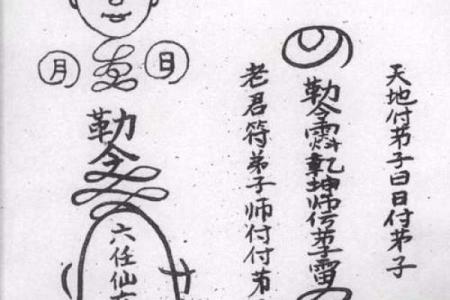 天地付弟子曰日付弟子
勒令乾坤师传弟子雷
老君符弟子师付付弟
月 日
勒令
六任仙